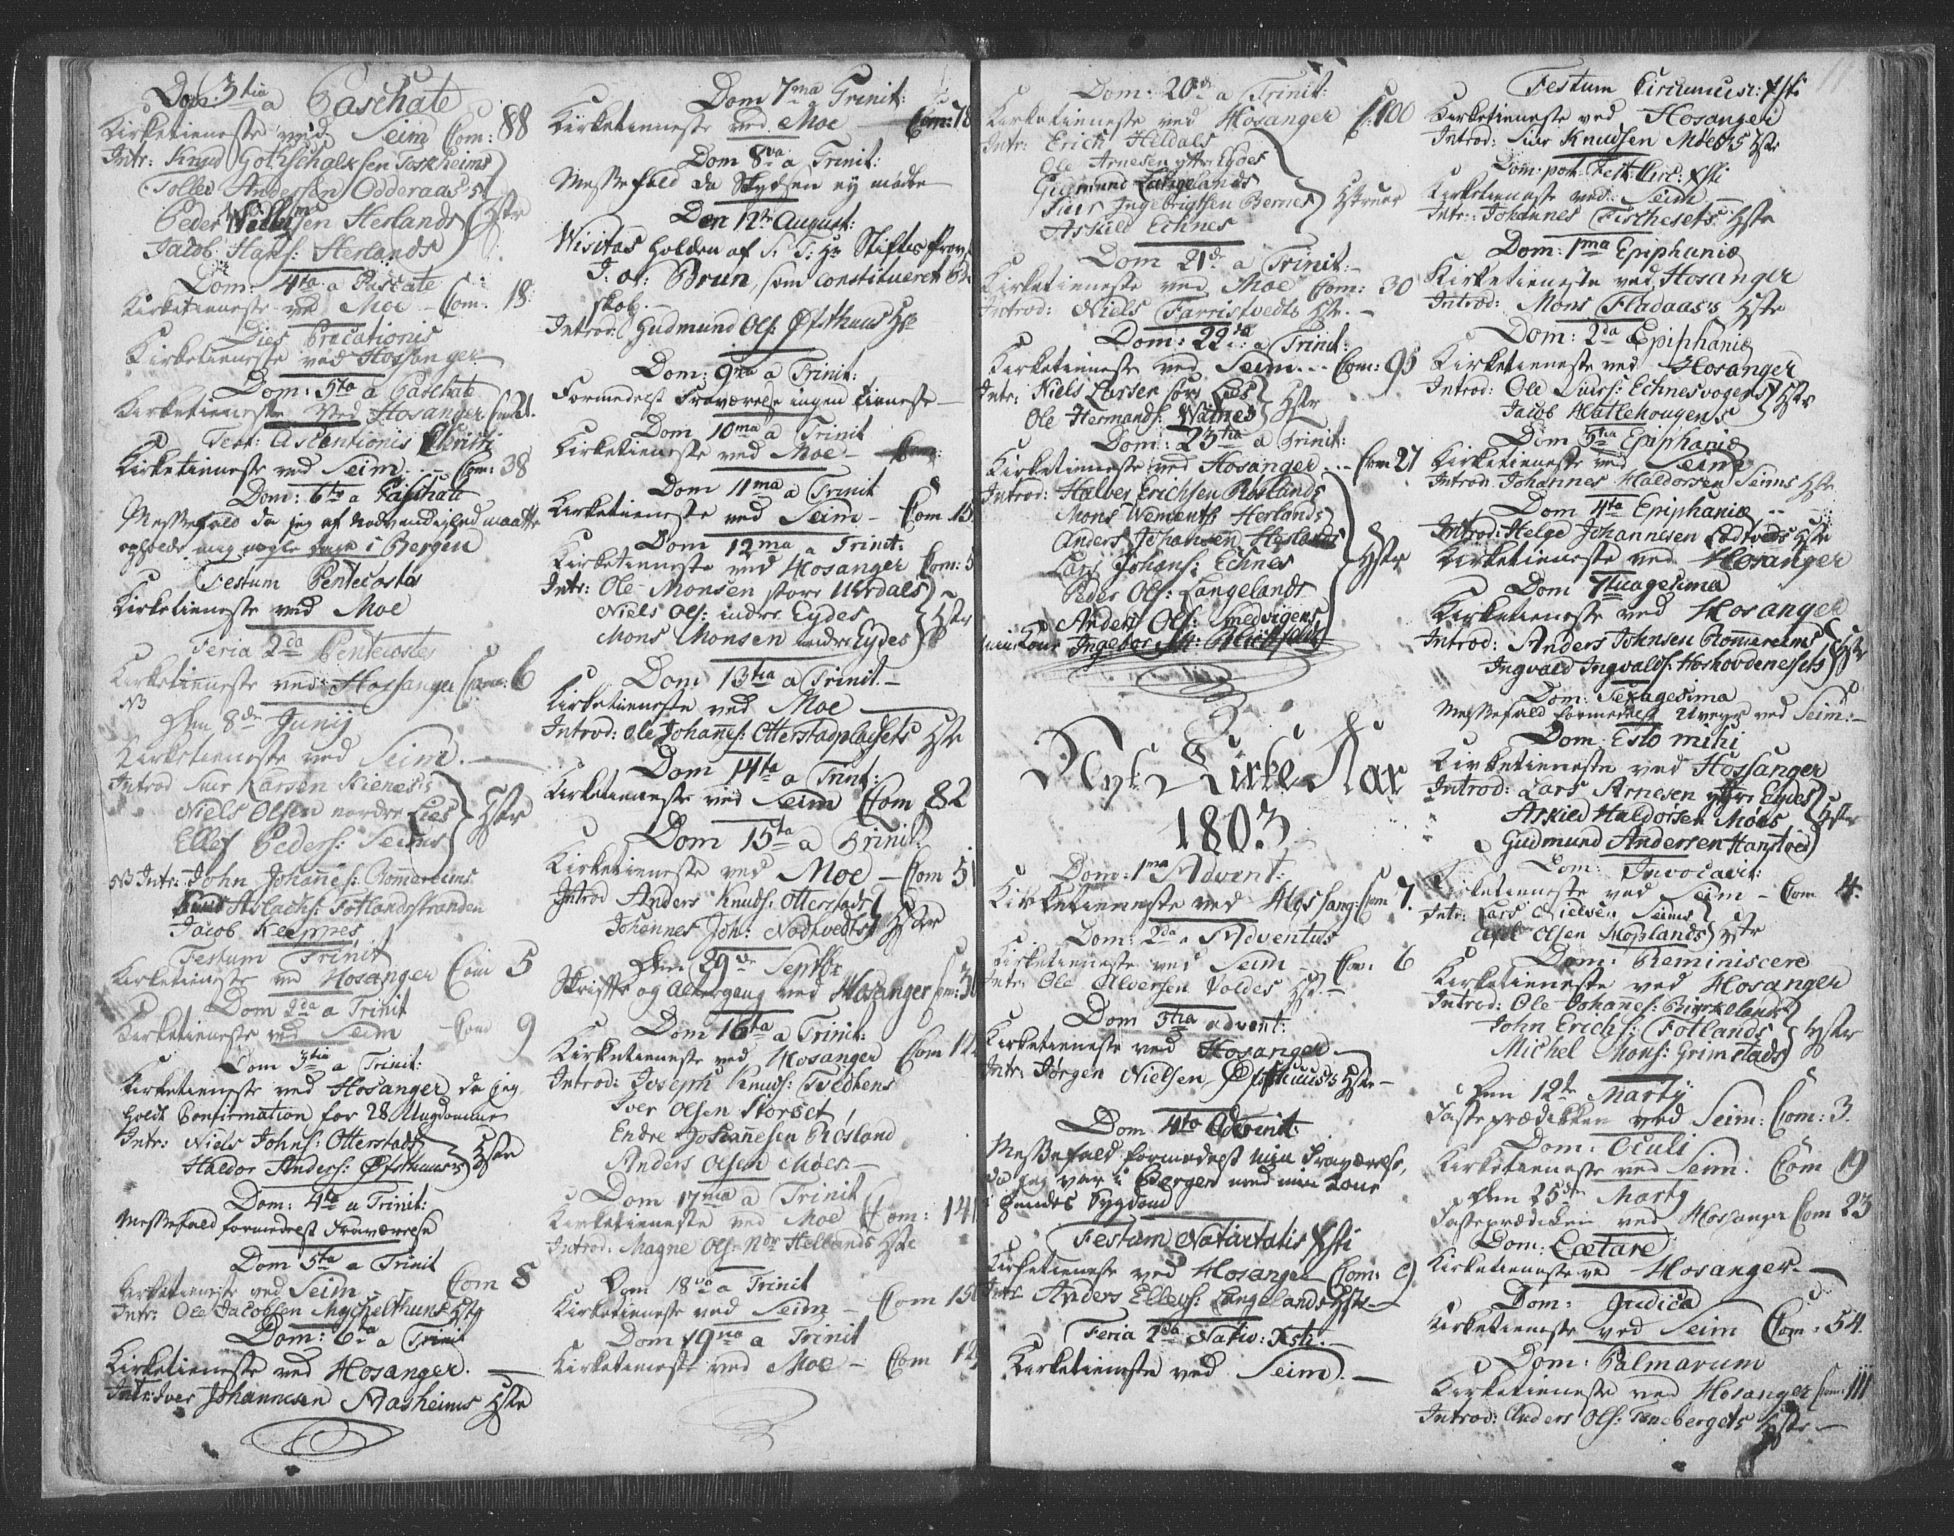 Dom: 3tia a Paschate
Kirketieneste ved Seim Com: 88
Intr: Knud Gotschalksen Toskheims
Tolles Andersen Odderaas's
Peder Herlands Hstr
Jacob Hans: Herlands
Dom: 4ta a Pascate
Kirketieneste ved Moe Com: 18.
Dies Precationis
Kirketieneste ved Hossanger
Dom: 5ta a Paschate
Kirketieneste ved Hosanger Com 21.
Fest: Ascentionis Christi
Kirketieneste ved Seim. - Com: 38
Dom: 6ta a Paschate
Messefald da jeg af Nødvendighed maatte
opholde mig nogle dage i Bergen
Festum Pentecostes
Kirketieneste ved Moe
Feria 2da Pentecostes
Kirketieneste ved Hossanger Com: 6
NB
Den 8de Junij
Kirketieneste ved Seim.
Introd Siur Larsen Kienes's
Niels Olsen nordre Lies
Ellef Peders: Seims Hstr
NB Intr: John Johannes: Romereims
Knud Aslachs: Fotlandsstranden
Jacob
Festum Trinit
Kirketieneste ved Hosanger Com 5
Dom 2da a Trinit
Kirketieneste ved Seim Com 9
Dom 3tia a Trinit:
Kirketieneste ved Hosanger da jeg
holdt Confirmation for 28 Ungdomme
Intr: Niels Johns: Otterstads
Haldor Anders: Øfsthuus's Hstr
Dom: 4ta a Trinit:
Messefald formedelst Fraværrelse
Dom 5ta a Trinit
Kirketieneste ved Seim. - Com 8
Intr: Ole Jacobsen Mychelthuns Hstr
Dom: 6ta a Trinit
Kirketieneste ved Hosanger.
Intr: Iver Johannesen Aasheims Hstr
Dom 7ma a Trinit:
Kirketieneste ved Moe Com: 78
Dom 8va a Trinit:
Messefald da Skydsen ey mødte
Den 12te August:
Visitas holden af S. T: Hr Stiftsprovst
J. N: Brun, som constitueret Bi-
skob.
Introd: Gudmund Ols: Øfsthuus Hstr
Dom: 9na a Trinit:
Formedelst Fraværelse ingen tieneste
Dom 10ma a Trinit
Kirketieneste ved Moe - Com:
Dom 11ma a Trinit
Kirketieneste ved Seim - Com 15.
Dom 12ma a Trinit:
Kirketieneste ved Hosanger Com: 5
Intr: Ole Monsen store Urdals
Niels Ols: indre Eydes Hstr
Mons Monsen indre Eydes
Dom: 13tia a Trinit -
Kirketieneste ved Moe
Introd: Ole Johannes: Otterstadpladsets Hstr
Dom 14ta a Trinit:
Kirketieneste ved Seim Com 82
Dom 15ta a Trinit.
Kirketieneste ved Moe - Com 51
Introd Anders Knuds: Otterstads
Johannes Joh: Nødtvedts Hstr
Den 29de Septbr
Skrifte og Altergang ved Hosanger Com: 3
Dom 16ta a Trinit:
Kirketieneste ved Hosanger Com 12
Introd: Joseph Knuds: Tvedtens
Iver Olsen Storset
Endre Johannesen Røsland
Anders Olsen Moes.
Dom 17ma a Trinit
Kirketieneste ved Moe Com: 141
Introd: Magne Ols: Ndr Hellands Hstr
Dom 18va a Trinit
Kirketieneste ved Seim - Com 15
Dom 19na a Trinit
Kirketieneste ved Moe - Com 12
Dom: 20de a Trinit:
Kirketieneste ved Hosanger C: 100
Intr: Erich Heldals
Ole Arnesen ytre Eydes
Gudmund Langelands
Siur Ingebrigtsen Bernes Hstruer
Askild Echnes
Dom 21de a Trinit:
Kirketieneste ved Moe Com: 30
Introd: Niels Farristvedts Hstr.
Dom: 22de a Trinit:
Kirketieneste ved Seim... Com: 95
Intr: Niels Larsen søre Lies
Ole Hermands: Watnes Hstr
Dom: 23tia a Trinit:
Kirketieneste ved Hosanger... Com 27
Introd: Halver Erichsen Røslands
Mons Herlands
Anders Johansen Heslands
Lars Johans: Echnes Hstr
Peder Ols: Langelands
Anders Ols:
min Kone Ingebor
Nyt Kirke Aar
1803
Dom: 1ma Advent:
Kirketieneste ved Hossang: Com 7.
Dom: 2da Adventus
Kirketieneste ved Seim - Com: 6
Intr: Ole Alversen Voldes Hst
Dom 3tia advent:
Kirketieneste ved Hosanger
Intr: Jørgen Nielsen Øfsthuus's Hstr
Dom 4ta Advent:
Messefald formedelst min Fraværelse,
da jeg var i Bergen med min Kone
i hendes Sygdom
Festum Nativitatis Xsti
Kirketieneste ved Hosanger Com: 9
Intr: Anders Ellevs: Langelands Hstr
Feria 2da Nativ: Xsti:
Kirketieneste ved Seim.
Festum Circumcis: Xsti
Kirketieneste ved Hosanger
Introd: Siur Knudsen Moes's Hstr
Dom: post Fest: Circ: Xsti
Kirketieneste ved Seim
Intr: Johannes Fischesets Hstr
Dom: 1ma Epiphaniæ
Kirketieneste ved Hosanger
Introd: Mons Fladaas's Hstr
Dom: 2da Epiphaniæ
Kirketieneste ved Hosanger
Introd: Ole Siurs: Echnesvogens
Jacob Hatlehougens Hstr
Dom 3tia Epiphaniæ
Kirketieneste ved Seim
Introd: Johannes Haldorsen Seims Hstr
Dom 4ta Epiphaniæ
Introd: Helge Johannesen Hstr
Kirketieneste ved Hosanger
Dom 7tuagesima
Kirketieneste ved Hosanger
Introd: Anders Johnsen Romereims
Ingvald Ingvalds: Hstr
Dom: Sexagesima
Messefald formedelst Uveyr ved Seim:
Dom. Esto mihi
Kirketieneste ved Hossanger
Introd: Lars Arnesen yttre Eydes
Askild Haldorsen Moes Hstr
Gudmund Andersen
Dom: Invocavit:
Kirketieneste ved Seim - Com 4.
Intr: Lars Nielsen Seims
Olsen Hoplands Hstr
Dom: Reminiscere
Kirketieneste ved Hosanger
Introd: Ole Johanes: Birkelands
John Erichs: Fotlands Hstr
Michel Mons: Grimstads
Den 12te Martij
Fasteprædikken ved Seim: Com: 3.
Dom: Oculi
Kirketieneste ved Seim. Com 19
Den 25de Martij
Fasteprædiken ved Hossanger Com 23
Dom: Lætare
Kirketieneste ved Hosanger.
Dom: Judica
Kirketieneste ved Seim Com: 54.
Dom: Palmarum
Kirketieneste ved Hosanger Com: 111
Introd: Anders Ols: Tenebergets Hstr